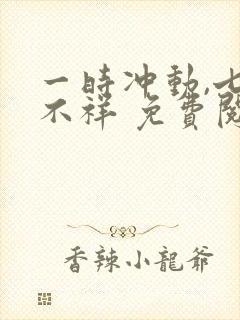 一時冲動,七
不祥 免費閱
香辣小龍爺